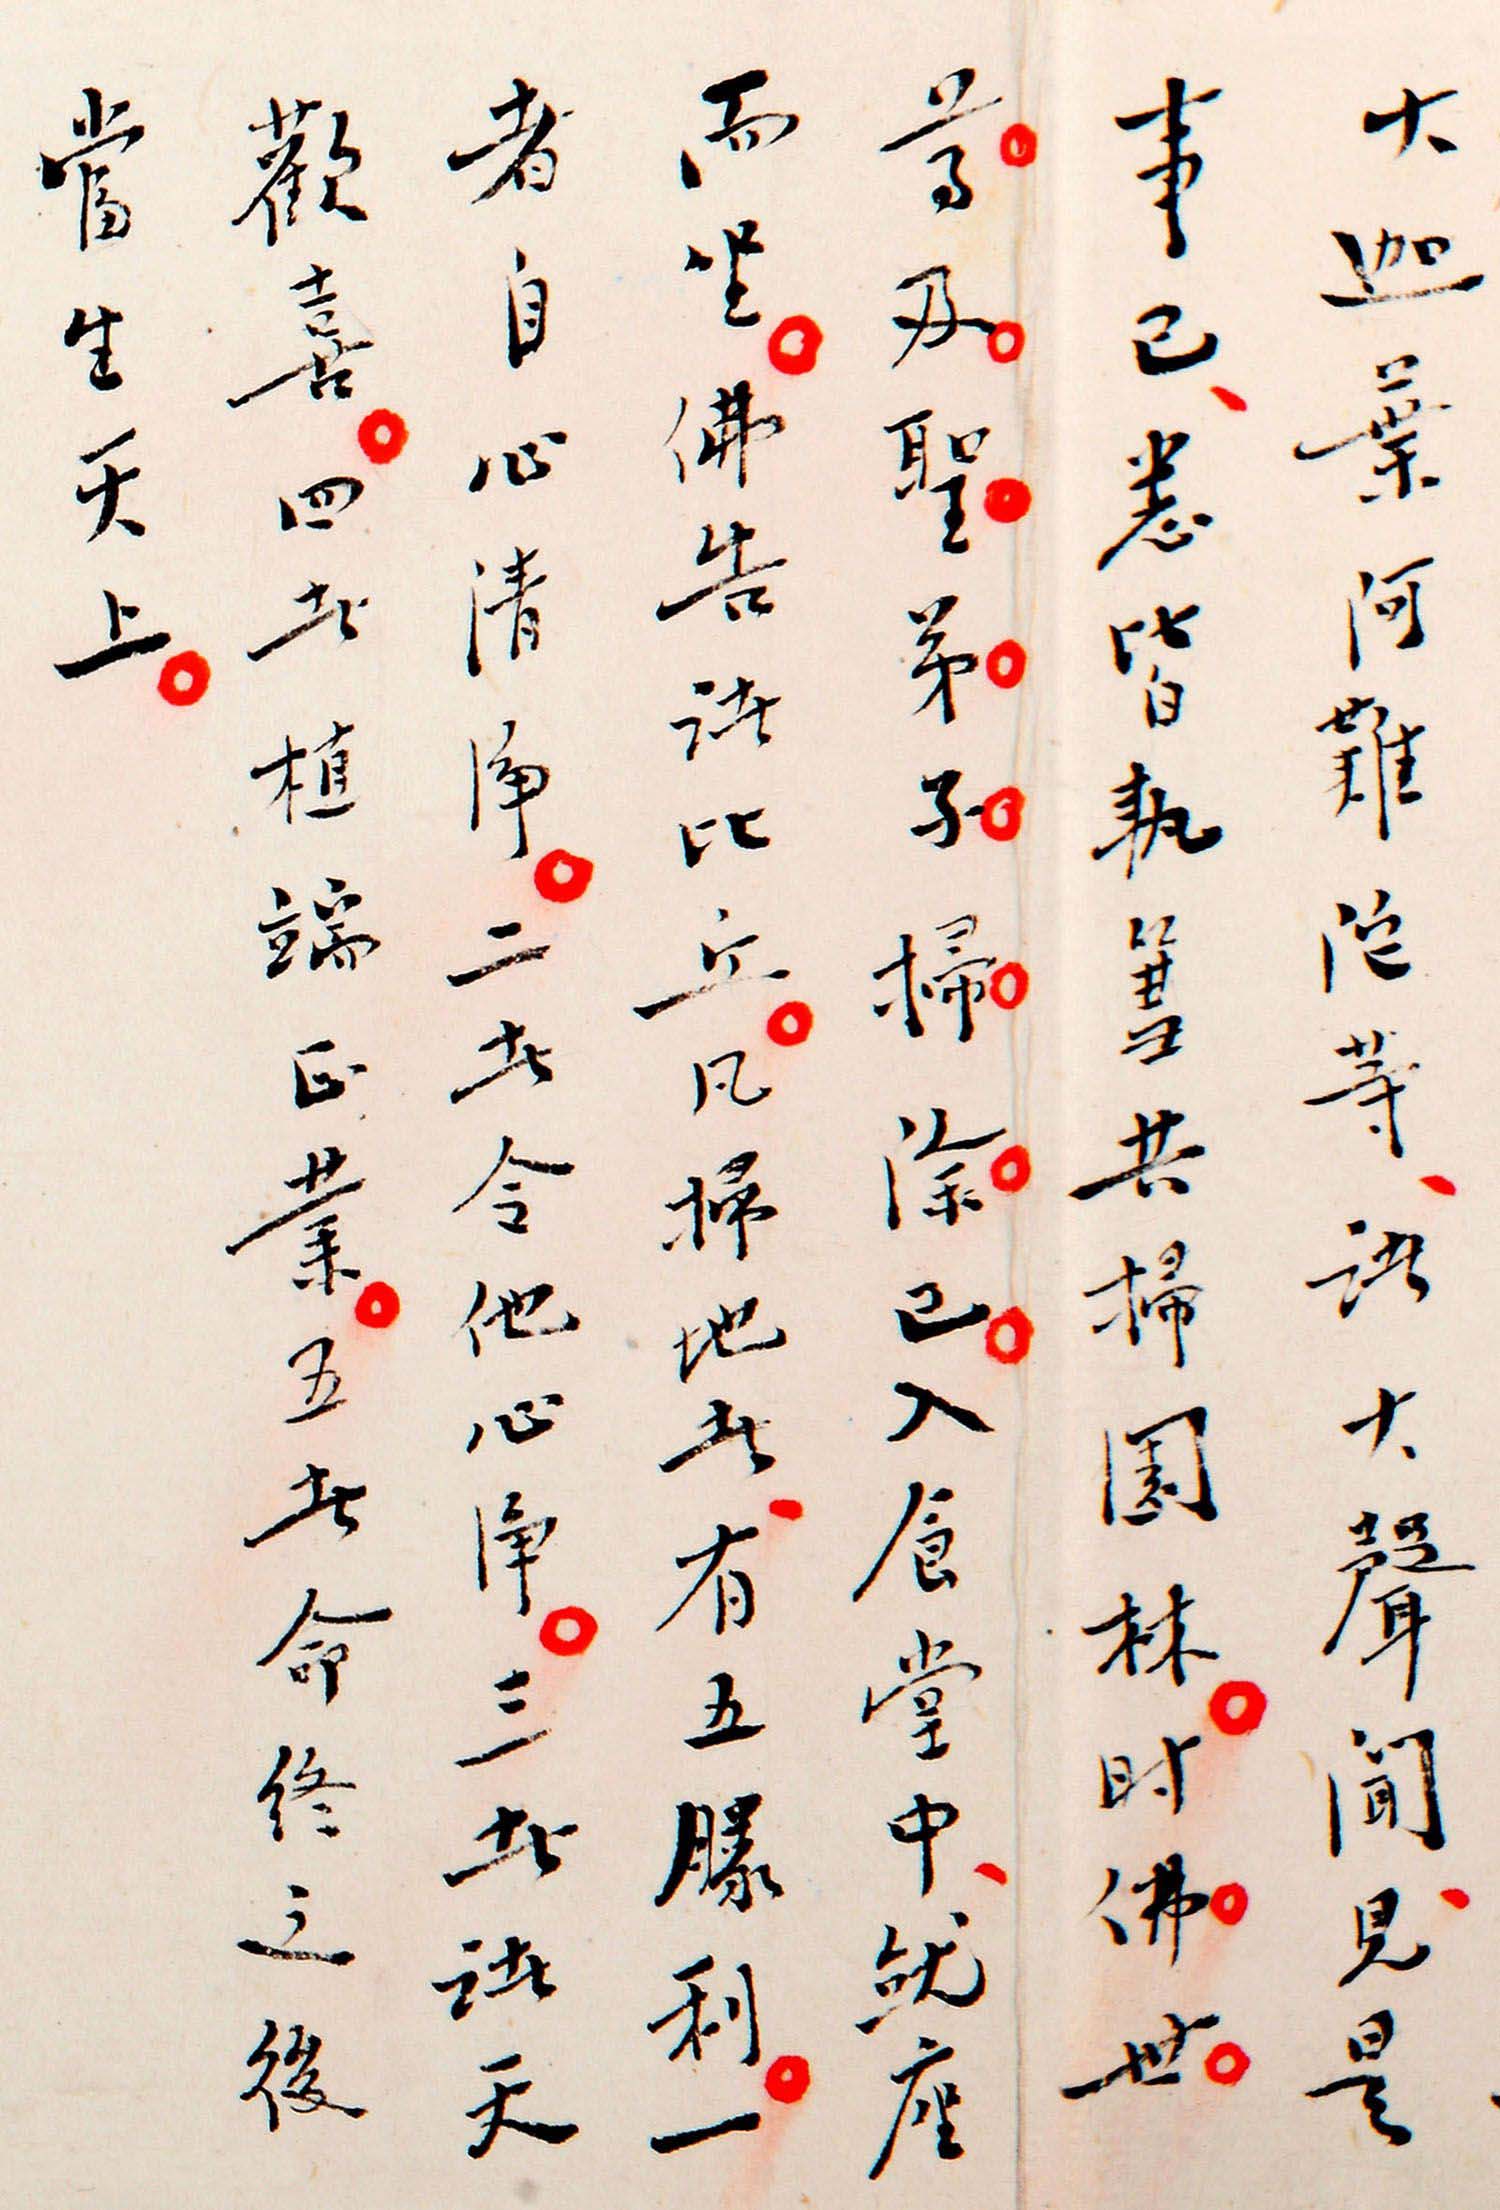 大迦葉阿難陀等、諸大聲聞見、是
事已、悉皆執篲共掃園林。時佛。世。
尊。及。聖。弟。子。掃。除。已。入食堂中、就座
而坐。佛告諸比丘。凡掃地者、有五勝利。一
者自心清淨。二者令他心淨。三者諸天
歡喜。四者植端正業。五者命終之後
當生天上。